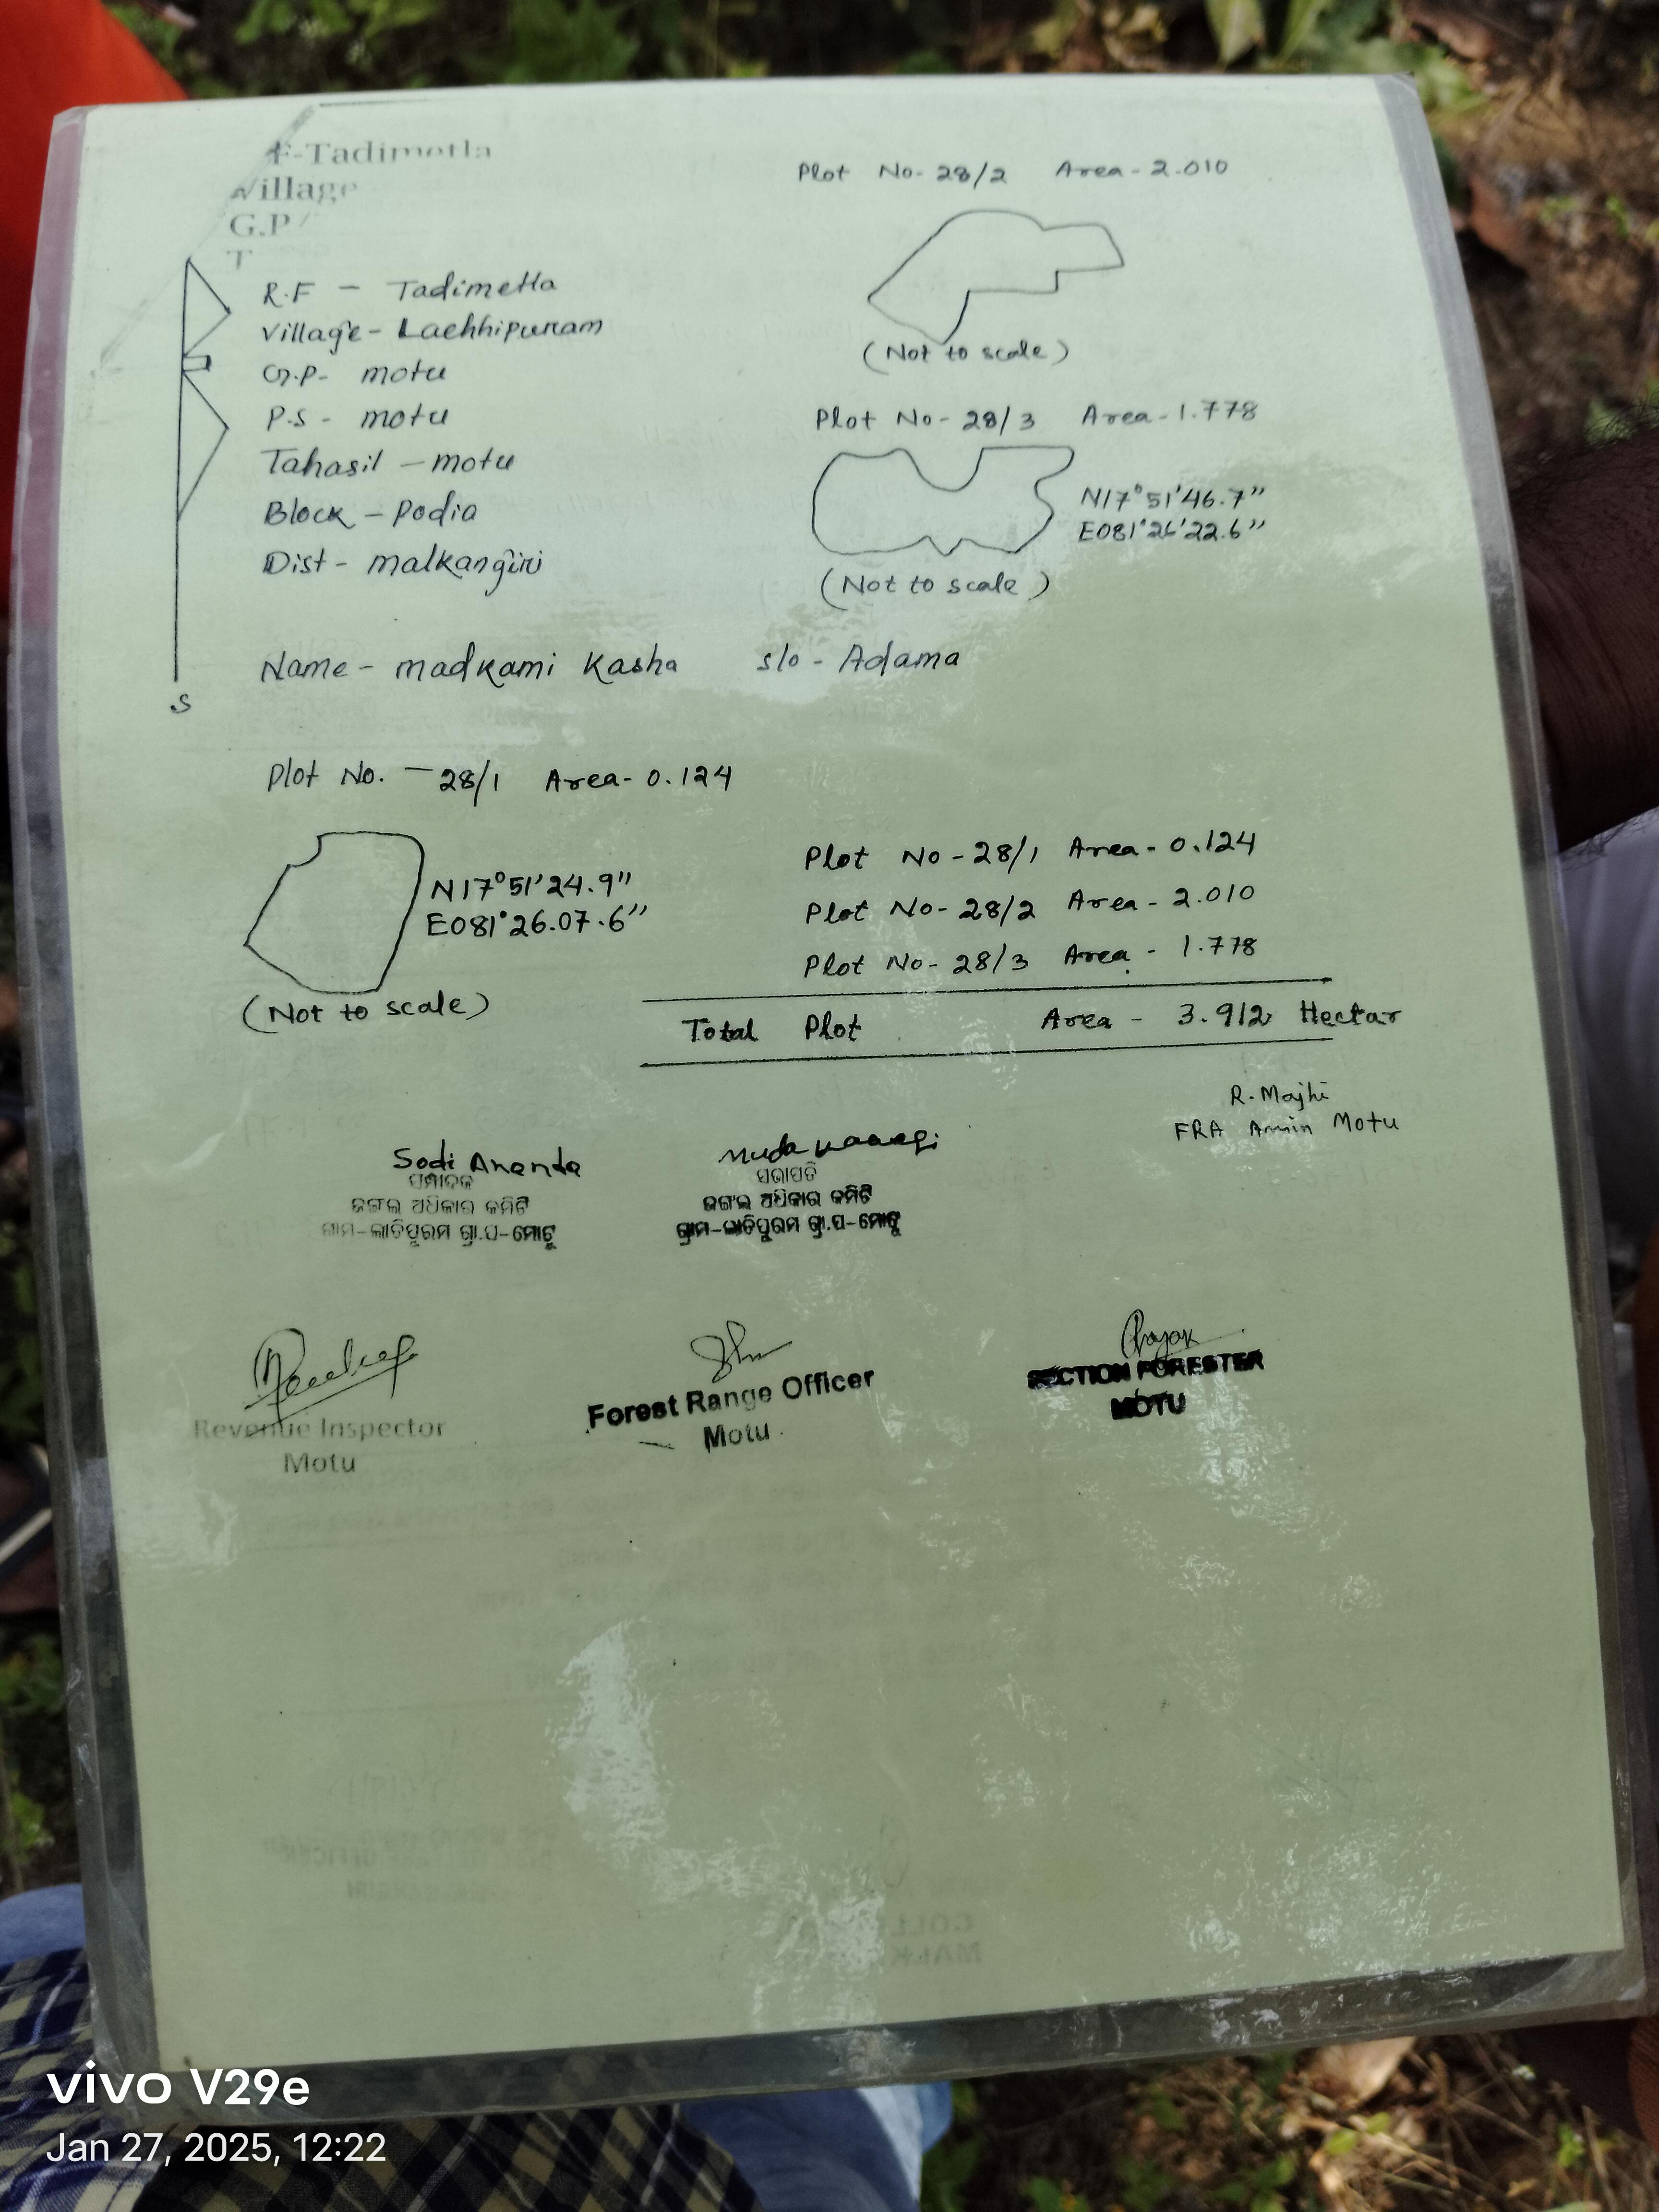 F-Tadimetla
Village
G.P
T
R.F - Tadimetla
Village - Lachhipuram
G.P- motu
P.S - motu
Tahasil - motu
Block - Podia
Dist - malkangiri
Plot No- 28/2 Area - 2.010
(Not to scale)
Plot No- 28/3 Area - 1.778
N17°51'46.7"
E081°26'22.6"
(Not to scale)
Name - madkami Kasha s/o - Adama
S
Plot No. - 28/1 Area- 0.124
N17°51'24.9"
E081°26.07.6"
(Not to scale)
Plot No - 28/1 Area - 0.124
Plot No- 28/2 Area - 2.010
Plot No- 28/3 Area - 1.778
Total Plot Area - 3.912 Hectar
R. Majhi
FRA Amin Motu
Sodi Ananda
ସମ୍ପାଦକ
ଜଙ୍ଗଲ ଅଧିକାର କମିଟି
ଗ୍ରାମ-ଲାଚିପୁରମ ଗ୍ରା.ପ-ମୋଟୁ
Muda
ସଭାପତି
ଜଙ୍ଗଲ ଅଧିକାର କମିଟି
ଗ୍ରାମ-ଲାଚିପୁରମ ଗ୍ରା.ପ-ମୋଟୁ
Revenue Inspector
Motu
Forest Range Officer
Motu
SECTION FORESTER
MOTU
vivo V29e
Jan 27, 2025, 12:22